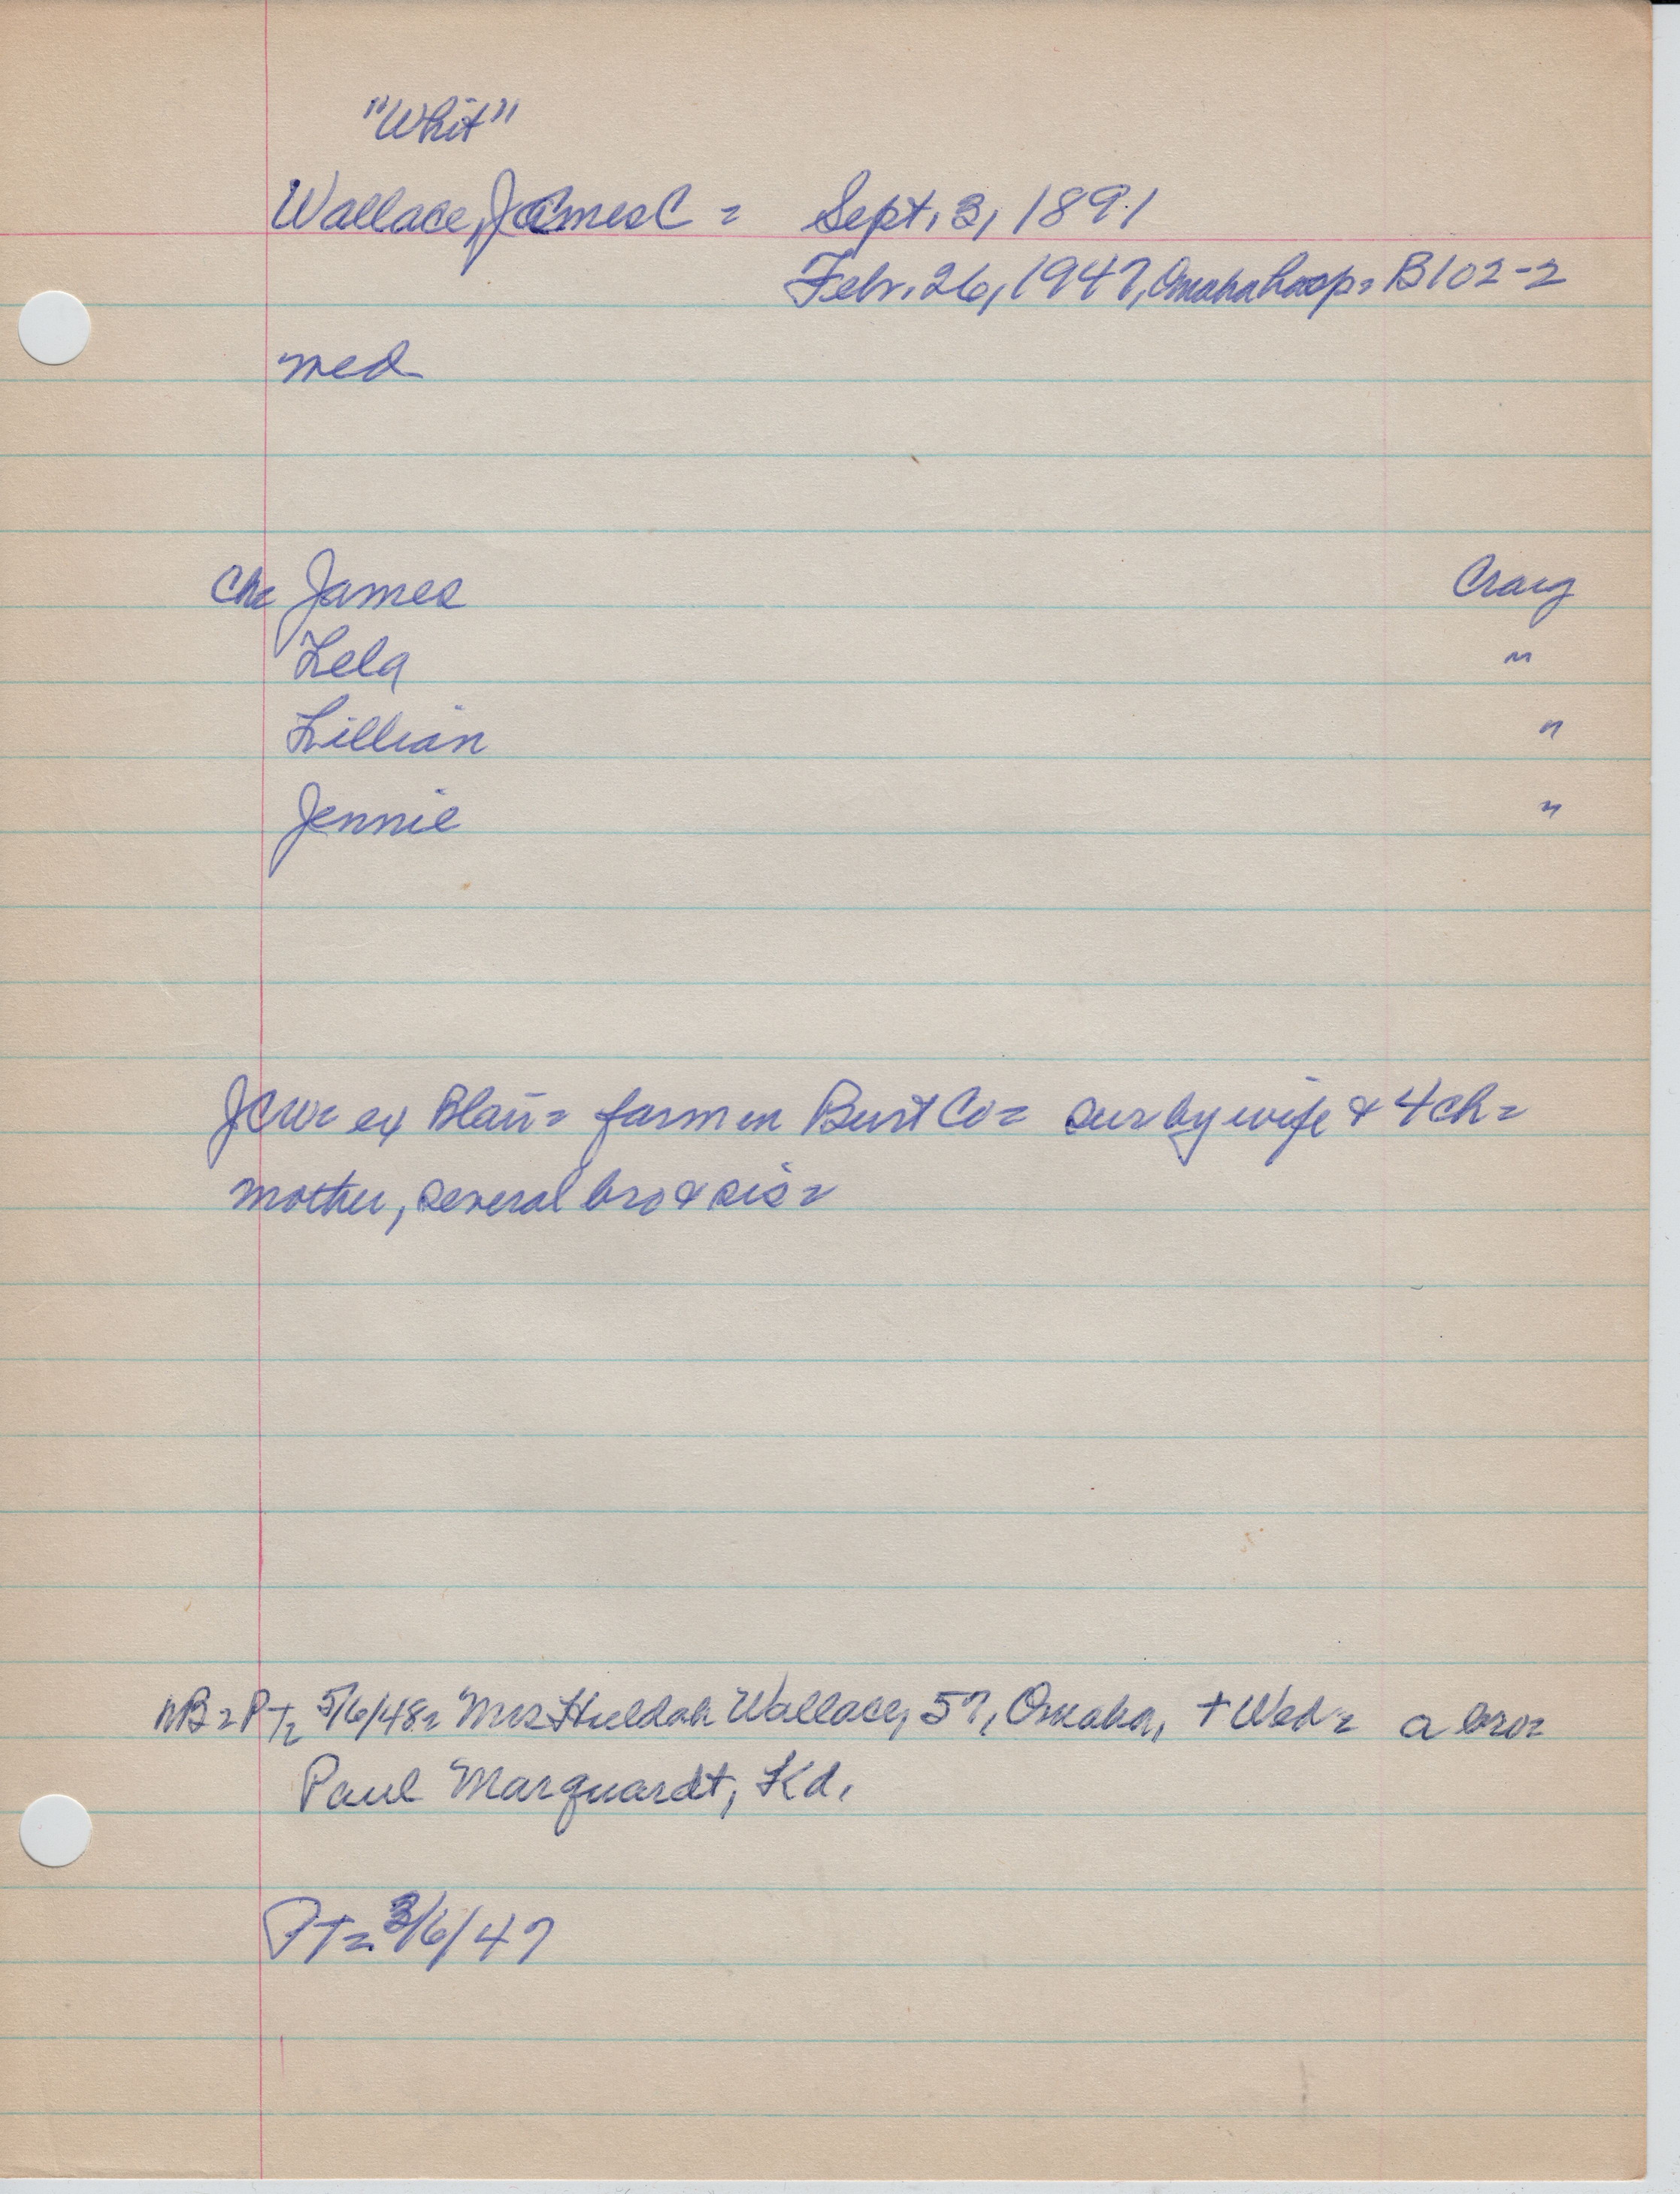 "Whit"
Wallace, James C = Sept. 3, 1891
Febr. 26, 1947, Omaha hosp= B102-2
med
Ch= James Craig
Lela "
Lillian "
Jennie "
JCW= ex Blair= farm in Burt Co= sur by wife & 4 ch=
mother, several bro & sis=
NB= PT= 5/6/48= Mrs Huldah Wallace, 57, Omaha, + Wed= a bro=
Paul Marquardt, Kd.
PT= 3/6/47